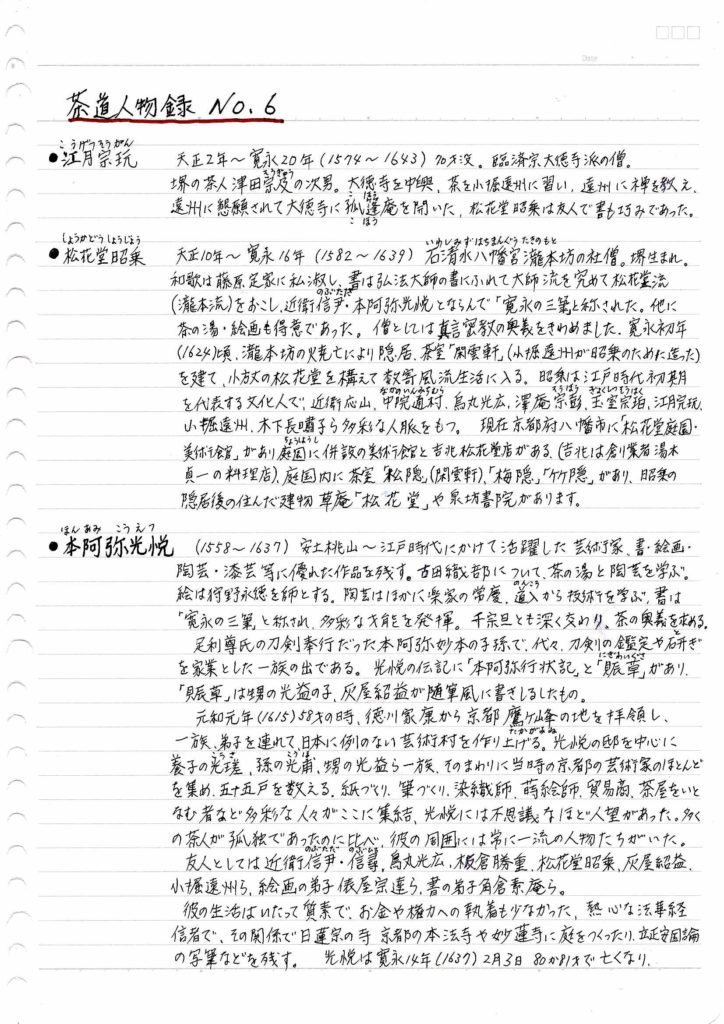 Date
茶道人物録 No.6
こうげつそうがん
●江月宗玩 天正2年～寛永20年(1574～1643) 70才没。臨済宗大徳寺派の僧。
そうきゅう
堺の茶人津田宗及の次男。大徳寺を中興、茶を小堀遠州に習い、遠州に禅を教え、
こほう
遠州に懇願されて大徳寺に孤篷庵を開いた、松花堂昭乗は友人で書も巧みであった。
こほう
しょうかどう しょうじょう
いわしみずはちまんぐう たきのもと
●松花堂昭乗 天正10年～寛永16年(1582～1639) 石清水八幡宮瀧本坊の社僧。堺生まれ。
和歌は藤原定家に私淑し、書は弘法大師の書にふれて大師流を究めて松花堂流
のぶただ
(瀧本流)をおこし、近衛信尹・本阿弥光悦とならんで「寛永の三筆と称された。他に
茶の湯・絵画も得意であった。僧としては真言密教の奥義をきわめました、寛永初年
(1624)頃、瀧本坊の焼亡により隠居、茶室「閑雲軒」(小堀遠州が昭乗のために造った)
を建て、小方丈の松花堂を構えて数寄風流生活に入る。昭乗は江戸時代初期
なかのいんみちむら そうほう ぎょくしつそうはく
を代表する文化人で、近衛応山、中院通村、烏丸光広、澤庵宗彭、玉室宗珀、江月宗玩、
小堀遠州、木下長嘯子ら多彩な人脈をもつ。現在京都府八幡市に「松花堂庭園・
美術館」があり庭園に併設の美術館と吉兆松花堂店がある。(吉兆は創業者湯木
貞一の料理店)、庭園内に茶室「松隠」(閑雲軒)、「梅隠」「竹隠」があり、昭乗の
隠居後の住んだ建物 草庵「松花堂」や泉坊書院があります。
ほんあみ こうえつ
●本阿弥光悦 (1558～1637) 安土桃山～江戸時代にかけて活躍した芸術家、書・絵画・
陶芸・漆芸等に優れた作品を残す。古田織部について、茶の湯と陶芸を学ぶ。
のんこう
絵は狩野永徳を師とする。陶芸はほかに楽家の常慶、道入から技術を学ぶ、書は
「寛永の三筆」と称され、多彩な才能を発揮。千宗旦とも深く交わり、茶の奥義を求める。
足利尊氏の刀剣奉行だった本阿弥妙本の子孫で、代々、刀剣の鑑定や研ぎ
にぎわいぐさ
を家業とした一族の出である。光悦の伝記に「本阿弥行状記」と「賑草」があり、
「賑草」は甥の光益の子、灰屋紹益が随筆風に書きしるしたもの。
元和元年(1615)58才の時、徳川家康から京都 鷹ヶ峰の地を拝領し、
たかがみね
一族、弟子を連れて、日本に例のない芸術村を作り上げる。光悦の邸を中心に
こうさ こうほ
養子の光瑳、孫の光甫、甥の光益ら一族、そのまわりに当時の京都の芸術家のほとんど
を集め、五十五戸を数える。紙づくり、筆づくり、染織師、蒔絵師、貿易商、茶屋をいと
なむ者など多彩な人々がここに集結、光悦には不思議なほど人望があった。多く
の茶人が孤独であったのに比べ、彼の周囲には常に一流の人物たちがいた。
のぶただ のぶひろ
友人としては近衛信尹・信尋、烏丸光広、板倉勝重、松花堂昭乗、灰屋紹益、
小堀遠州ら、絵画の弟子俵屋宗達ら、書の弟子角倉素庵ら。
彼の生活はいたって質素で、お金や権力への執着も少なかった、熱心な法華経
信者で、その関係で日蓮宗の寺 京都の本法寺や妙蓮寺に庭をつくったり、立正安国論
の写筆などを残す。 光悦は寛永14年(1637)2月3日 80か81才で亡くなり、